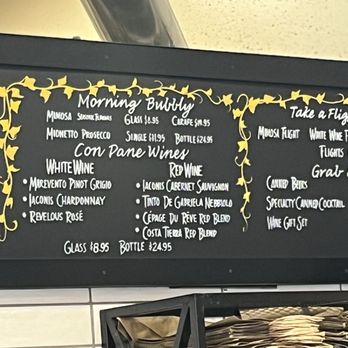 Morning Bubbly
Mimosa Seasonal Flavors Glass $8.95 Carafe $19.95
Mionetto Prosecco Single $11.95 Bottle $24.95
Con Pane Wines
White Wine
• Marevento Pinot Grigio
• Iaconis Chardonnay
• Revelous Rosé
Red Wine
• Iaconis Cabernet Sauvignon
• Tinto De Gabriela Nebbiolo
• Cépage Du Rêve Red Blend
• Costa Tierra Red Blend
Glass $8.95 Bottle $24.95
Take a Flig
Mimosa Flight White Wine F
Flights
Grab
Canned Beers
Specialty Canned Cocktail
Wine Gift Set